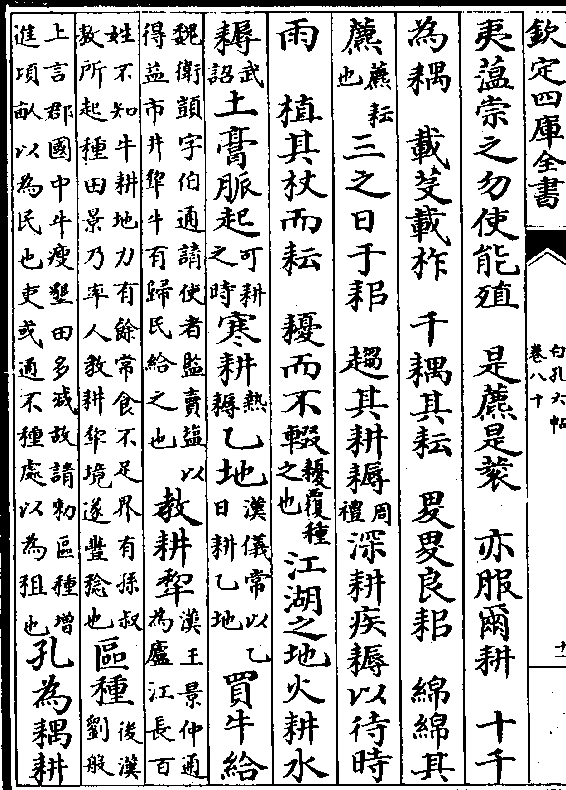 欽定四庫全書
白孔六帖
卷八十
十一
夷蕰崇之勿使能殖　是藨是蔉　亦服爾耕　十千
為耦　載芟載柞　千耦其耘　畟畟良耜　綿綿其
藨藨耘也三之日于耜　趨其耕耨周禮深耕疾耨以待時
雨　植其杖而耘　擾而不輟耰覆種之也江湖之地火耕水
耨武詔土膏脈起可耕之時寒耕熱耨乙地漢儀常以乙日耕乙地　買牛給
魏衛顗字伯通請使者監賣塩以得益市井犂牛有歸民給之也　教耕犂漢王景仲通為廬江長百
姓不知牛耕地力有餘常食不足界有孫叔敖所起種田景乃率人教耕犂境遂豐稔也區種後漢劉般
上言郡國中牛瘦墾田多减故請勅區種增進頃畝以為民也吏或通不種處以為租也孔為耦耕